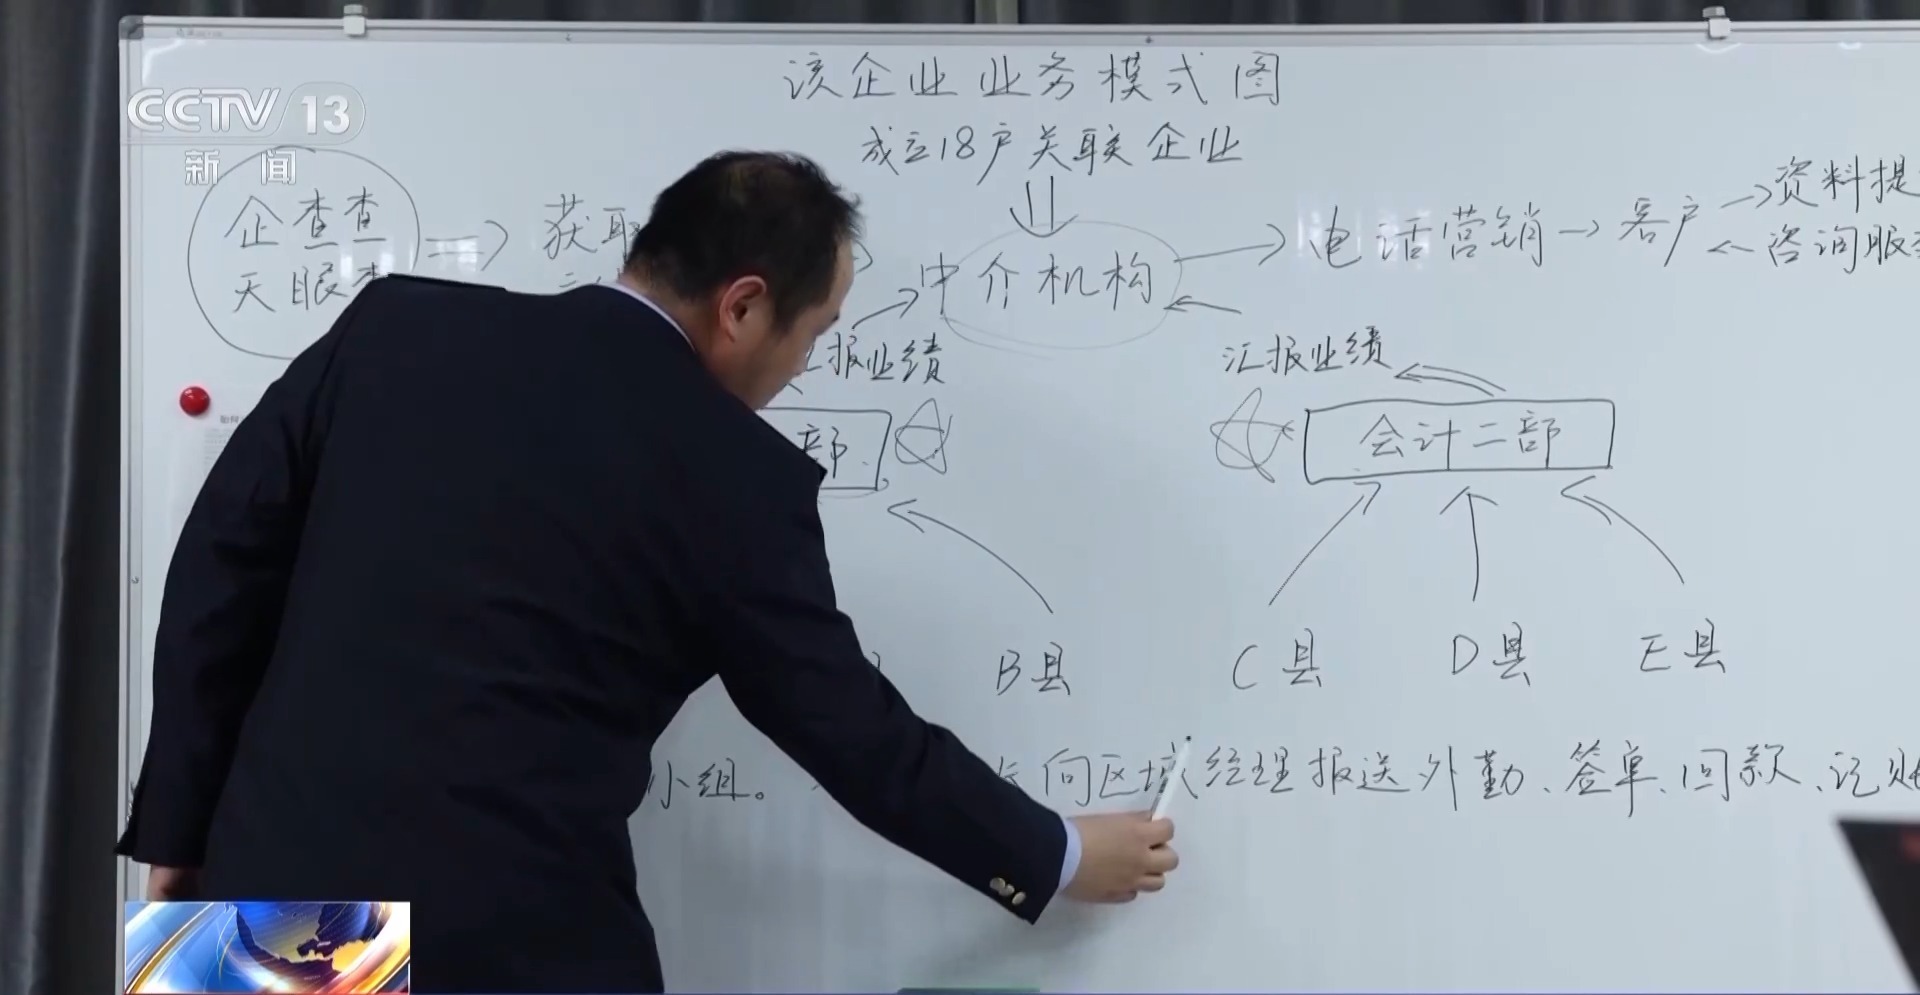 CCTV 13
新闻
该企业业务模式图
成立18户关联企业
企查查
天眼查
获取
中介机构
电话营销
客户
资料提
咨询服务
汇报业绩
汇报业绩
部
会计二部
B县
C县
D县
E县
小组。
向区域经理报送外勤、签单、回款、记账